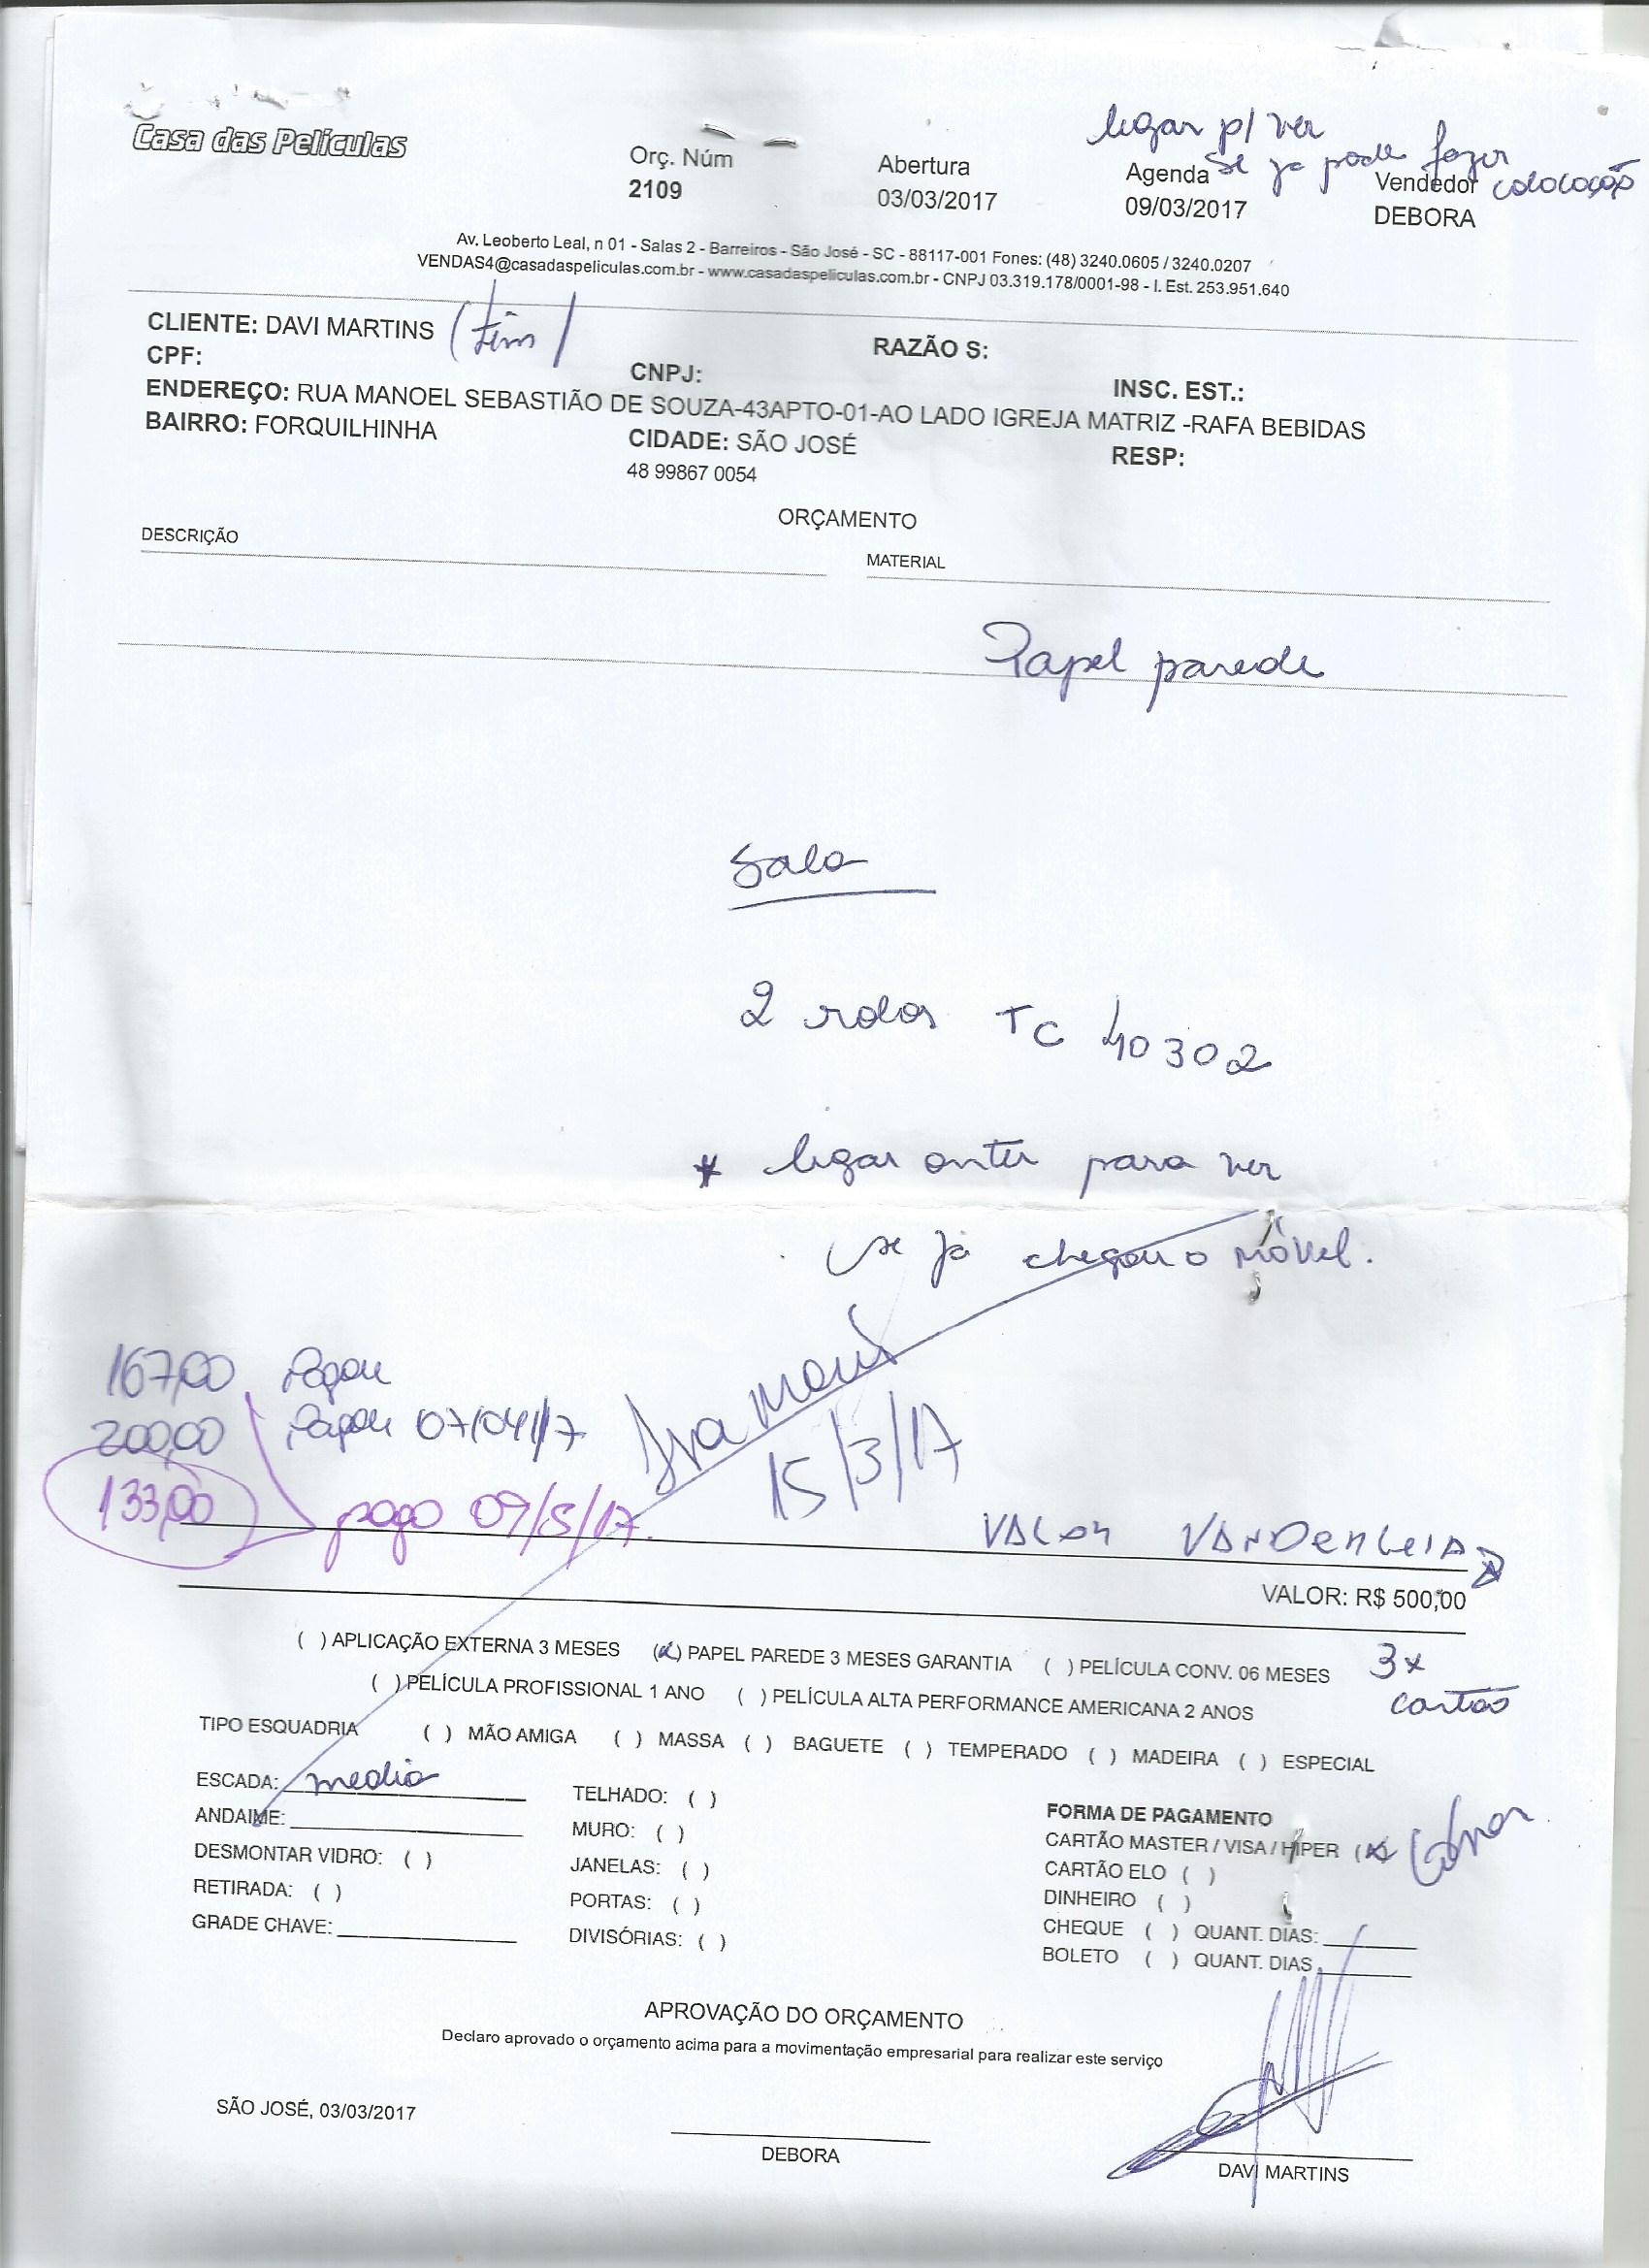 Casa das Películas
ligar p/ ver
se ja pode fazer
colocação
Orç. Núm
2109
Abertura
03/03/2017
Agenda
09/03/2017
Vendedor
DEBORA
Av. Leoberto Leal, n 01 - Salas 2 - Barreiros - São José - SC - 88117-001 Fones: (48) 3240.0605 / 3240.0207
VENDAS4@casadaspeliculas.com.br - www.casadaspeliculas.com.br - CNPJ 03.319.178/0001-98 - I. Est. 253.951.640
CLIENTE: DAVI MARTINS (tim)
RAZÃO S:
CPF:
CNPJ:
INSC. EST.:
ENDEREÇO: RUA MANOEL SEBASTIÃO DE SOUZA-43APTO-01-AO LADO IGREJA MATRIZ -RAFA BEBIDAS
BAIRRO: FORQUILHINHA
CIDADE: SÃO JOSÉ
RESP:
48 99867 0054
ORÇAMENTO
DESCRIÇÃO
MATERIAL
Papel parede
Sala
2 rolos TC 40302
* ligar antes para ver
se já chegou o móvel.
167,00 Pagou
200,00 Pagou 07/04/17
133,00 pago 09/5/17.
15/3/17
VALOR
VALOR: R$ 500,00
( ) APLICAÇÃO EXTERNA 3 MESES (x) PAPEL PAREDE 3 MESES GARANTIA ( ) PELÍCULA CONV. 06 MESES
3x
cartão
( ) PELÍCULA PROFISSIONAL 1 ANO ( ) PELÍCULA ALTA PERFORMANCE AMERICANA 2 ANOS
TIPO ESQUADRIA ( ) MÃO AMIGA ( ) MASSA ( ) BAGUETE ( ) TEMPERADO ( ) MADEIRA ( ) ESPECIAL
ESCADA: media
TELHADO: ( )
ANDAIME:
MURO: ( )
DESMONTAR VIDRO: ( )
JANELAS: ( )
RETIRADA: ( )
PORTAS: ( )
GRADE CHAVE:
DIVISÓRIAS: ( )
FORMA DE PAGAMENTO
CARTÃO MASTER / VISA / HIPER (x)
CARTÃO ELO ( )
DINHEIRO ( )
CHEQUE ( ) QUANT. DIAS:
BOLETO ( ) QUANT. DIAS
APROVAÇÃO DO ORÇAMENTO
Declaro aprovado o orçamento acima para a movimentação empresarial para realizar este serviço
SÃO JOSÉ, 03/03/2017
DEBORA
DAVI MARTINS